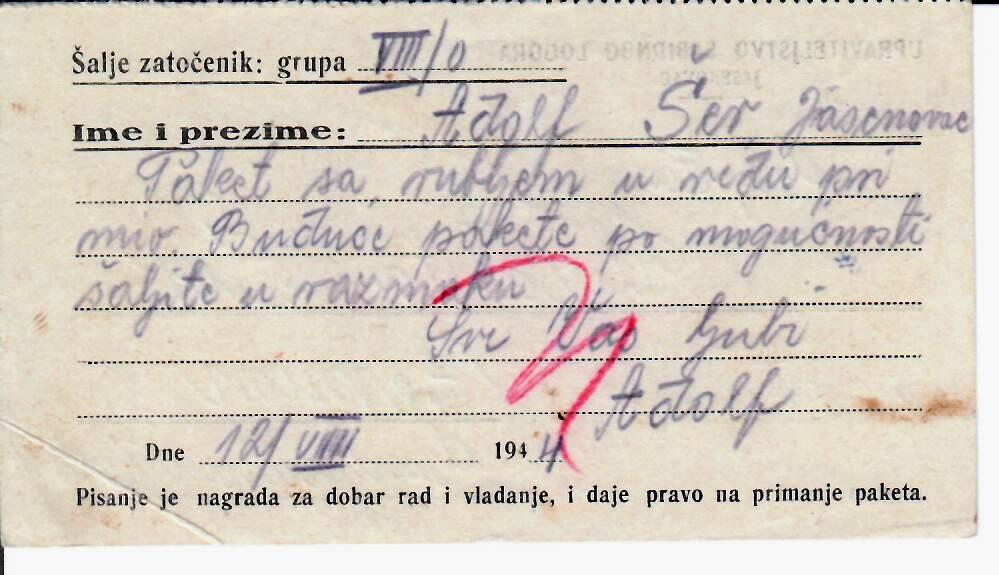 UPRAVITELJSTVO SABIRNOG LOGORA
JASENOVAC
Šalje zatočenik: grupa VIII/0
Ime i prezime: Adolf Šer Jasenovac
Paket sa rubljem u redu pri
mio. Buduće pakete po mogućnosti
šaljite u razmaku
Sve Vas ljubi
Adolf
Dne 12/VIII 1944
Pisanje je nagrada za dobar rad i vladanje, i daje pravo na primanje paketa.